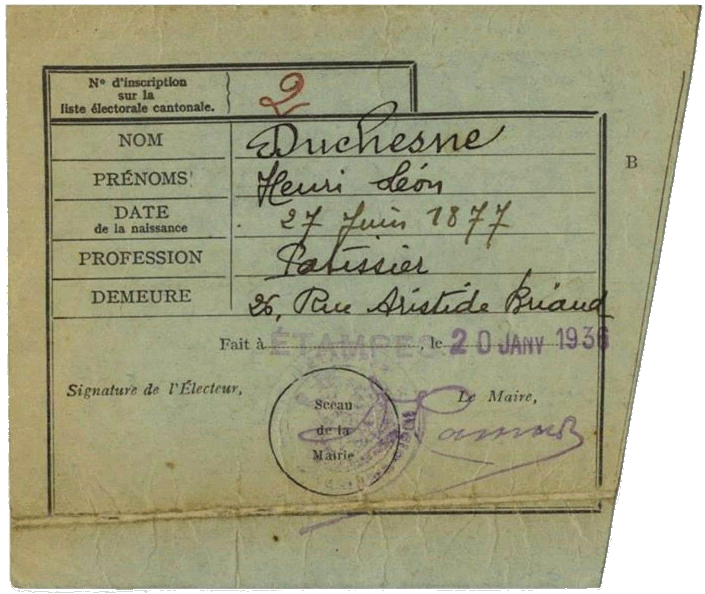 N° d'inscription
sur la
liste électorale cantonale.
2
NOM Duchesne
PRÉNOMS Henri Léon
DATE
de la naissance
27 Juin 1877
PROFESSION Patissier
DEMEURE 26, Rue Aristide Briand
B
Fait à ÉTAMPES, le 20 JANV 1936
Signature de l'Électeur,
Le Maire,
Sceau
de la
Mairie